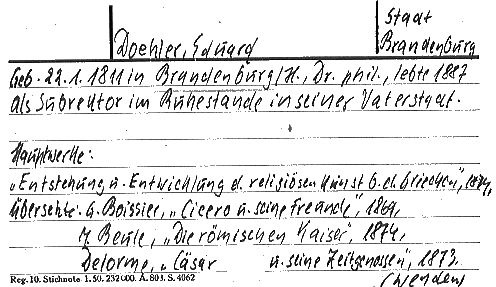 Stadt
Doehler, Eduard Brandenburg
Geb. 22.1.1811 in Brandenburg/H., Dr. phil., lebte 1887
als Subrektor im Ruhestande in seiner Vaterstadt.
Hauptwerke:
„Entstehung u. Entwicklung d. religiösen Kunst b. d. Griechen", 1874,
übersetzte: G. Boissier, „Cicero u. seine Freunde", 1869,
Beulé, „Die römischen Kaiser", 1874,
Delorme, „Cäsar u. seine Zeitgenossen", 1873.
Reg. 10. Stichnote. 1. 50. 232 000. A. 803. S. 4062